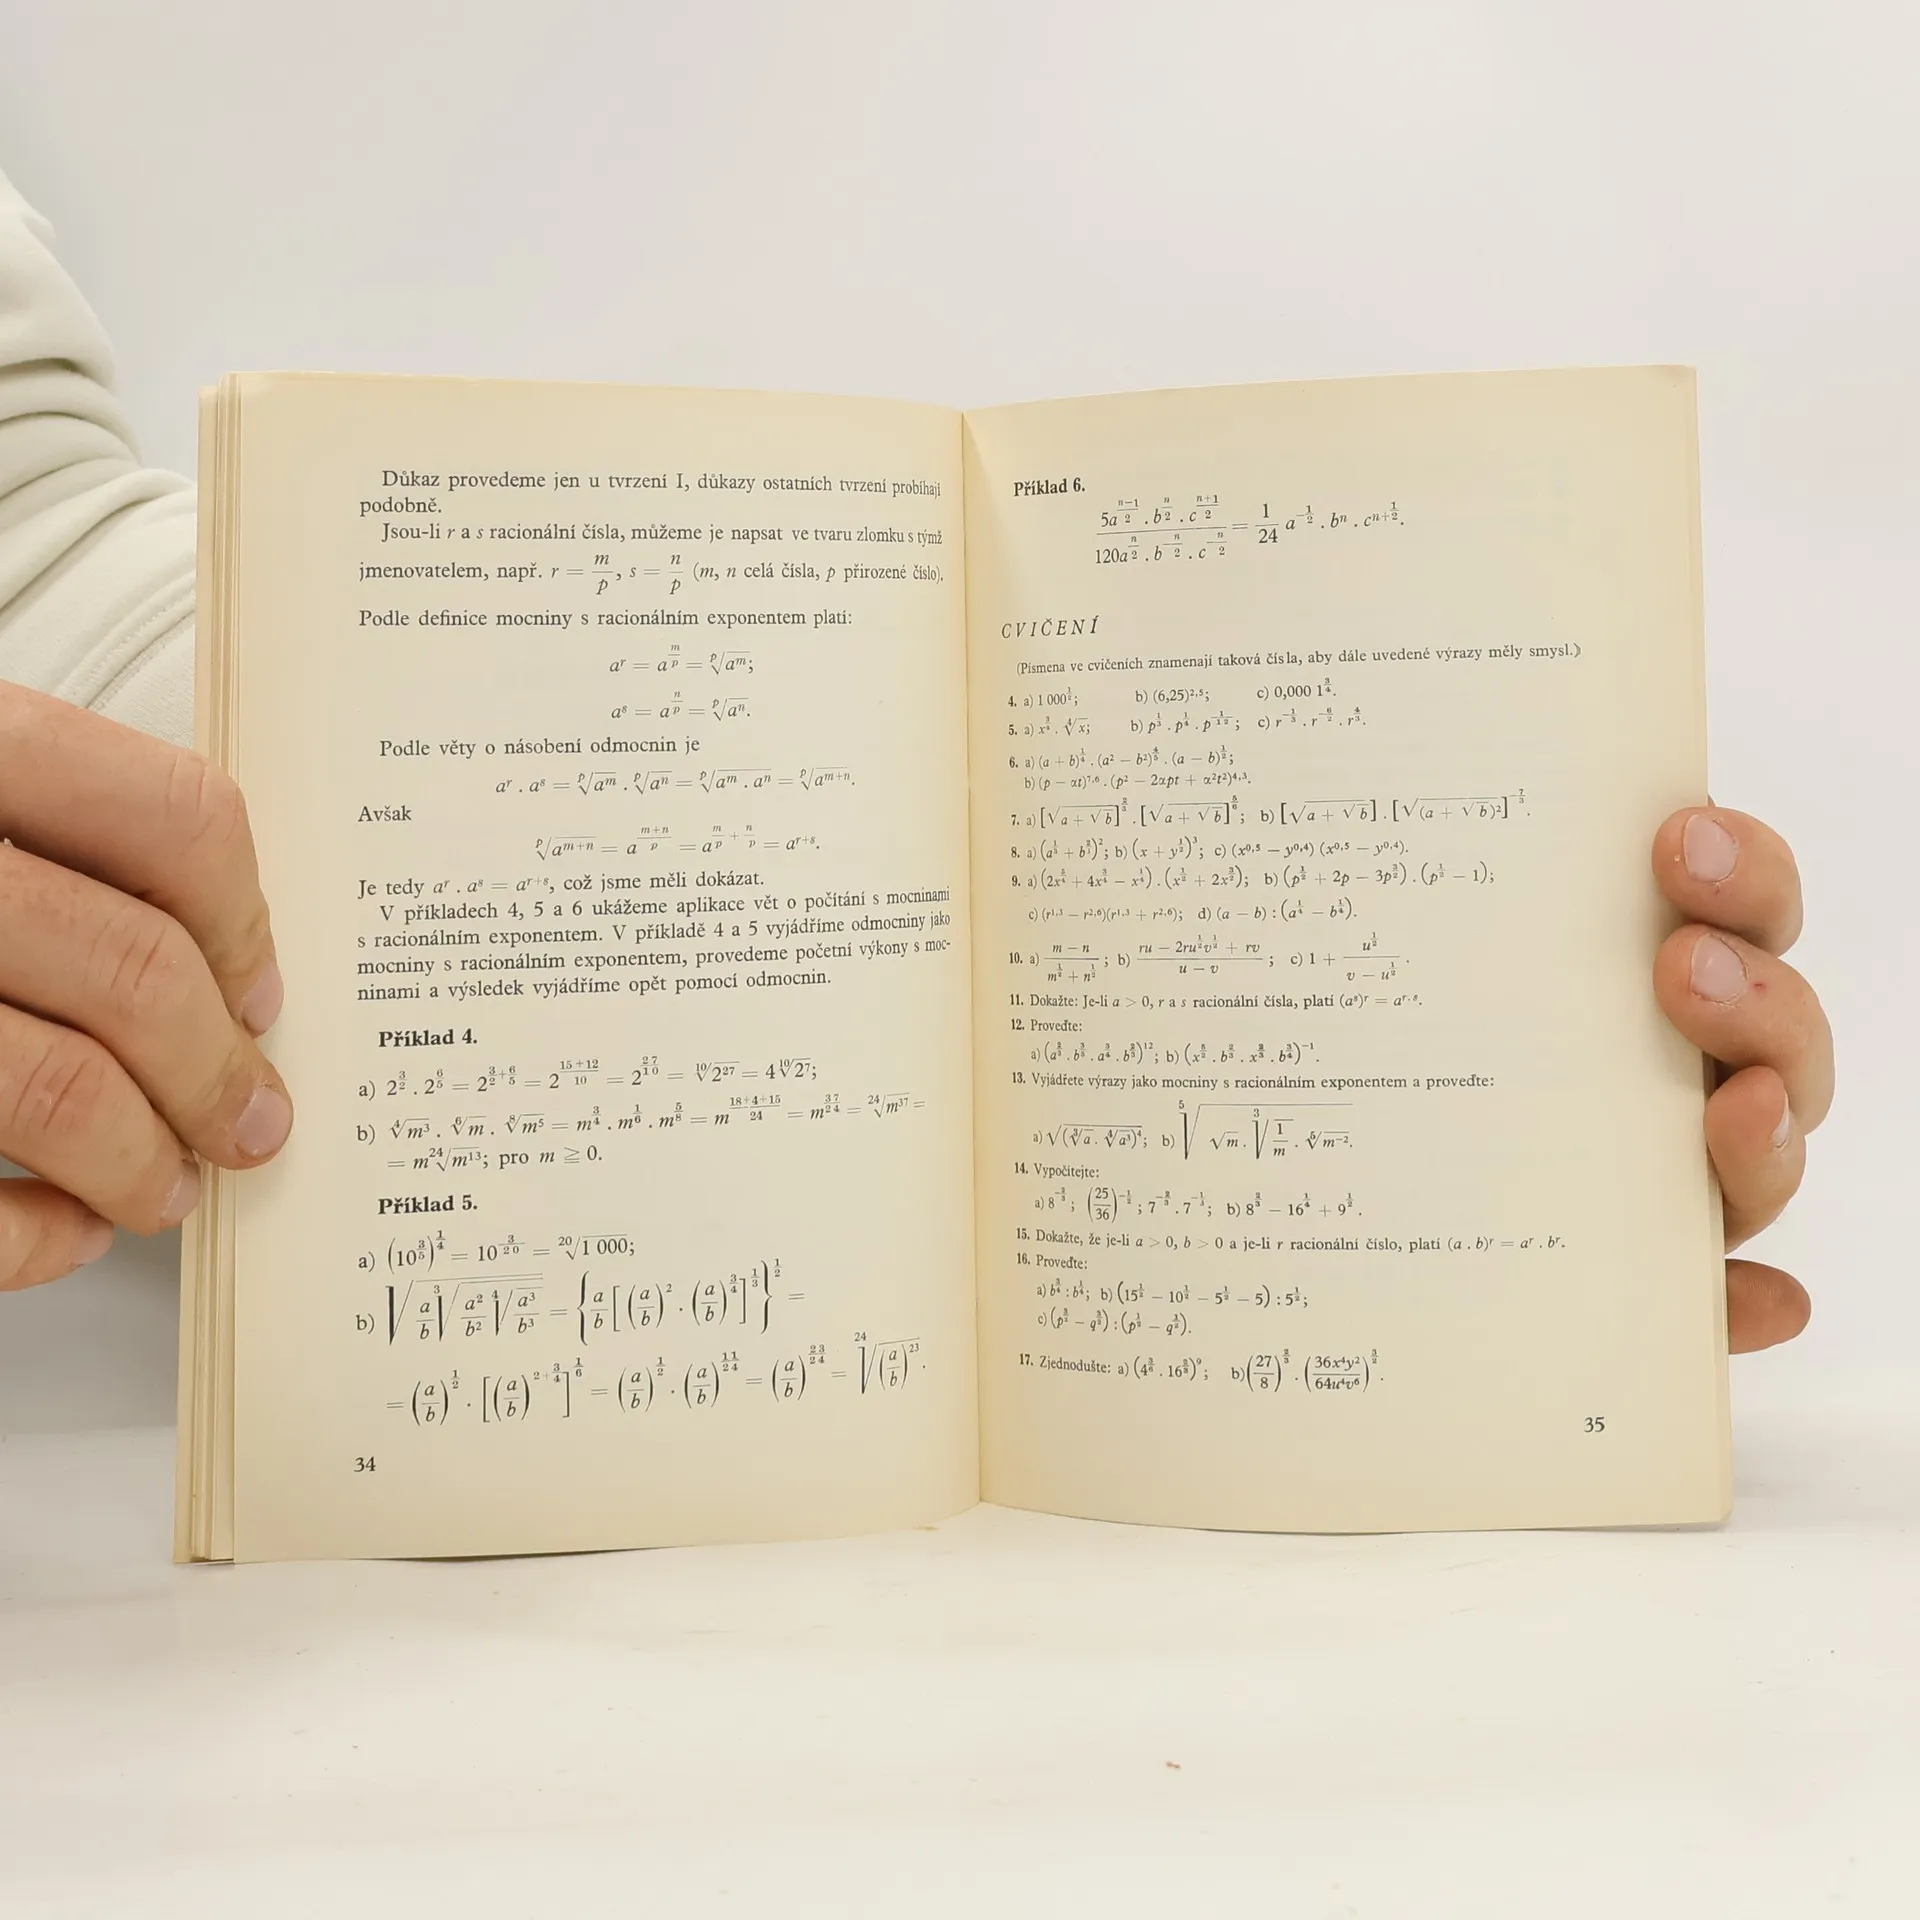 Důkaz provedeme jen u tvrzení I, důkazy ostatních tvrzení probíhají
podobně.
Jsou-li r a s racionální čísla, můžeme je napsat ve tvaru zlomku s týmž
jmenovatelem, např. r = m/p, s = n/p (m, n celá čísla, p přirozené číslo).
Podle definice mocniny s racionálním exponentem platí:
a^r = a^(m/p) = ᵖ√(a^m);
a^s = a^(n/p) = ᵖ√(a^n).
Podle věty o násobení odmocnin je
a^r . a^s = ᵖ√(a^m) . ᵖ√(a^n) = ᵖ√(a^m . a^n) = ᵖ√(a^(m+n)).
Avšak
ᵖ√(a^(m+n)) = a^((m+n)/p) = a^(m/p + n/p) = a^(r+s).
Je tedy a^r . a^s = a^(r+s), což jsme měli dokázat.
V příkladech 4, 5 a 6 ukážeme aplikace vět o počítání s mocninami
s racionálním exponentem. V příkladě 4 a 5 vyjádříme odmocniny jako
mocniny s racionálním exponentem, provedeme početní výkony s moc-
ninami a výsledek vyjádříme opět pomocí odmocnin.
Příklad 4.
a) 2^(3/2) . 2^(6/5) = 2^(3/2+6/5) = 2^((15+12)/10) = 2^(27/10) = ¹⁰√(2^27) = 4 ¹⁰√(2^7);
b) ⁴√(m^3) . ⁶√m . ⁸√(m^5) = m^(3/4) . m^(1/6) . m^(5/8) = m^((18+4+15)/24) = m^(37/24) = ²⁴√(m^37) =
= m ²⁴√(m^13); pro m ≧ 0.
Příklad 5.
a) (10^(3/5))^(1/4) = 10^(3/20) = ²⁰√(1 000);
b) √(a/b ³√(a²/b² ⁴√(a³/b³))) = {a/b [(a/b)² . (a/b)^(3/4)]^(1/3)}^(1/2) =
= (a/b)^(1/2) . [(a/b)^(2+3/4)]^(1/6) = (a/b)^(1/2) . (a/b)^(11/24) = (a/b)^(23/24) = ²⁴√((a/b)^23).
34
Příklad 6.
(5a^((n−1)/2) . b^(n/2) . c^((n+1)/2)) / (120a^(n/2) . b^(−n/2) . c^(−n/2)) = 1/24 a^(−1/2) . b^n . c^(n+1/2).
CVIČENÍ
(Písmena ve cvičeních znamenají taková čísla, aby dále uvedené výrazy měly smysl.)
4. a) 1 000^(1/2); b) (6,25)^2,5; c) 0,000 1^(3/4).
5. a) x^(3/4) . ⁴√x; b) p^(1/3) . p^(1/4) . p^(−1/12); c) r^(−1/3) . r^(−6/2) . r^(4/3).
6. a) (a + b)^(1/4) . (a² − b²)^(4/5) . (a − b)^(1/2);
b) (p − αt)^7,6 . (p² − 2αpt + α²t²)^4,3.
7. a) [√(a + √b)]^(2/3) . [√(a + √b)]^(5/6); b) [√(a + √b)] . [√((a + √b)²)]^(−7/3).
8. a) (a^(1/3) + b^(2/3))²; b) (x + y^(1/2))³; c) (x^0,5 − y^0,4) (x^0,5 − y^0,4).
9. a) (2x^(1/4) + 4x^(3/4) − x^(1/4)) . (x^(1/2) + 2x^(3/2)); b) (p^(1/2) + 2p − 3p^(3/2)) . (p^(1/2) − 1);
c) (r^1,3 − r^2,6)(r^1,3 + r^2,6); d) (a − b) : (a^(1/4) − b^(1/4)).
10. a) (m − n)/(m^(1/2) + n^(1/2)); b) (ru − 2ru^(1/2)v^(1/2) + rv)/(u − v); c) 1 + u^(1/2)/(v − u^(1/2)).
11. Dokažte: Je-li a > 0, r a s racionální čísla, platí (a^s)^r = a^(r.s).
12. Proveďte:
a) (a^(2/3) . b^(3/5) . a^(3/4) . b^(2/3))^12; b) (x^(5/2) . b^(2/3) . x^(2/3) . b^(3/4))^(−1).
13. Vyjádřete výrazy jako mocniny s racionálním exponentem a proveďte:
a) √((³√a . ⁴√(a³))⁴); b) ⁵√(√m . ³√(1/m) . ⁵√(m^(−2))).
14. Vypočítejte:
a) 8^(−2/3); (25/36)^(−1/2); 7^(−2/3) . 7^(−1/3); b) 8^(2/3) − 16^(1/4) + 9^(1/2).
15. Dokažte, že je-li a > 0, b > 0 a je-li r racionální číslo, platí (a . b)^r = a^r . b^r.
16. Proveďte:
a) b^(3/4) : b^(1/4); b) (15^(1/2) − 10^(1/2) − 5^(1/2) − 5) : 5^(1/2);
c) (p^(3/2) − q^(3/2)) : (p^(1/2) − q^(1/2)).
17. Zjednodušte: a) (4^(3/6) . 16^(2/3))^9; b) (27/8)^(2/3) . (36x⁴y²/64u⁴v⁶)^(3/2).
35